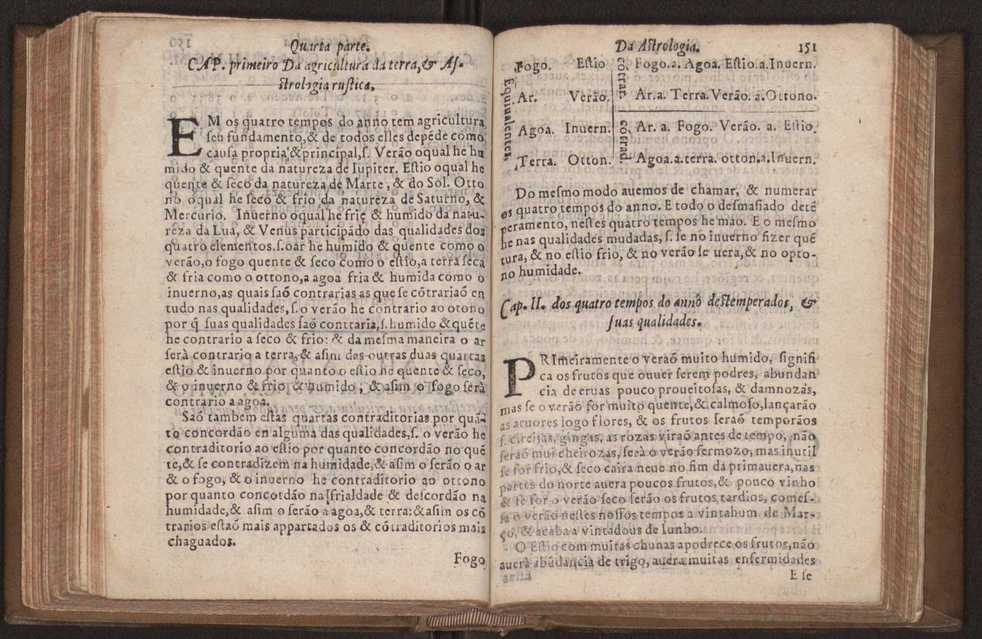 Quarta parte.
CAP. primeiro Da agricultura da terra, & As-
trologia rustica.
EM os quatro tempos do anno tem agricultura
seu fundamento, & de todos elles depẽde como
causa propria, & principal, s. Verão oqual he hu
mido & quente da natureza de Iupiter. Estio oqual he
quente & seco da natureza de Marte, & do Sol. Otto
no oqual he seco & frio da natureza de Saturno, &
Mercurio. Inuerno oqual he frie & humido da natu-
reza da Lua, & Venus participãdo das qualidades dos
quatro elementos. s. oár he humido & quente como o
verão, o fogo quente & seco como o estio, a terra seca
& fria como o ottono, a agoa fria & humida como o
inuerno, as quais saõ contrarias as que se cõtrariaõ en
tudo nas qualidades, s. o verão he contrario ao otono
por q̃ suas qualidades saõ contraria, s. humido & quẽte
he contrario a seco & frio: & da mesma maneira o ar
serà contrario a terra, & asim das outras duas quartas
estio & inuerno por quanto o estio he quente & seco,
& o inuerno & frio & humido, & asim o fogo serà
contrario a agoa.
Saõ tambem estas quartas contraditorias por quã-
to concordão en alguma das qualidades, s. o verão he
contraditorio ao estio por quanto concordão no quẽ
te, & se contradizem na humidade, & asim o serão o ar
& o fogo, & o inuerno he contraditorio ao ottono
por quanto concotdão na frialdade & descordão na
humidade, & asim o serão a agoa, & terra: & asim os cõ
trarios estaõ mais appartados os & cõtraditorios mais
chaguados.
Fogo
Da Astrologia. 151
Equiualentes
Fogo. Estio contrar. Fogo. a. Agoa. Estio. a. Inuern.
Ar. Verão. Ar. a. Terra. Verão. a. Ottono.
Agoa. Inuern. cõtrad. Ar. a. Fogo. Verão. a. Estio.
Terra. Otton. Agoa. a. terra. otton. a. Inuern.
Do mesmo modo auemos de chamar, & numerar
os quatro tempos do anno. E todo o desmasiado detẽ
peramento, nestes quatro tempos he mao. E o mesmo
he nas qualidades mudadas, s. se no inuerno fizer quẽ
tura, & no estio frio, & no verão se uera, & no opto-
no humidade.
Cap. II. dos quatro tempos do anno destemperados, &
suas qualidades.
PRImeiramente o veraõ muito humido, signifi
ca os frutos que ouuer serem podres, abundan
cia de eruas pouco proueitosas, & damnozas,
mas se o verão for muito quente, & calmoso, lançarão
as aruores logo flores, & os frutos seraõ temporãos
s. cireijas, gingas, as rozas viraõ antes de tempo, não
seraõ mui cheirozas, serà o verão fermozo, mas inutil
se for frio, & seco caira neue no fim da primauera, nas
partes do norte auera poucos frutos, & pouco vinho
& se for o verão seco serão os frutos tardios, comes-
sa o verão nestes nossos tempos a vintahum de Mar-
ço, & acaba a vintadous de Iunho.
O Estio com muitas chuuas apodrece os frutos, não
auerà abũdancia de trigo, auera muitas enfermidades
E se